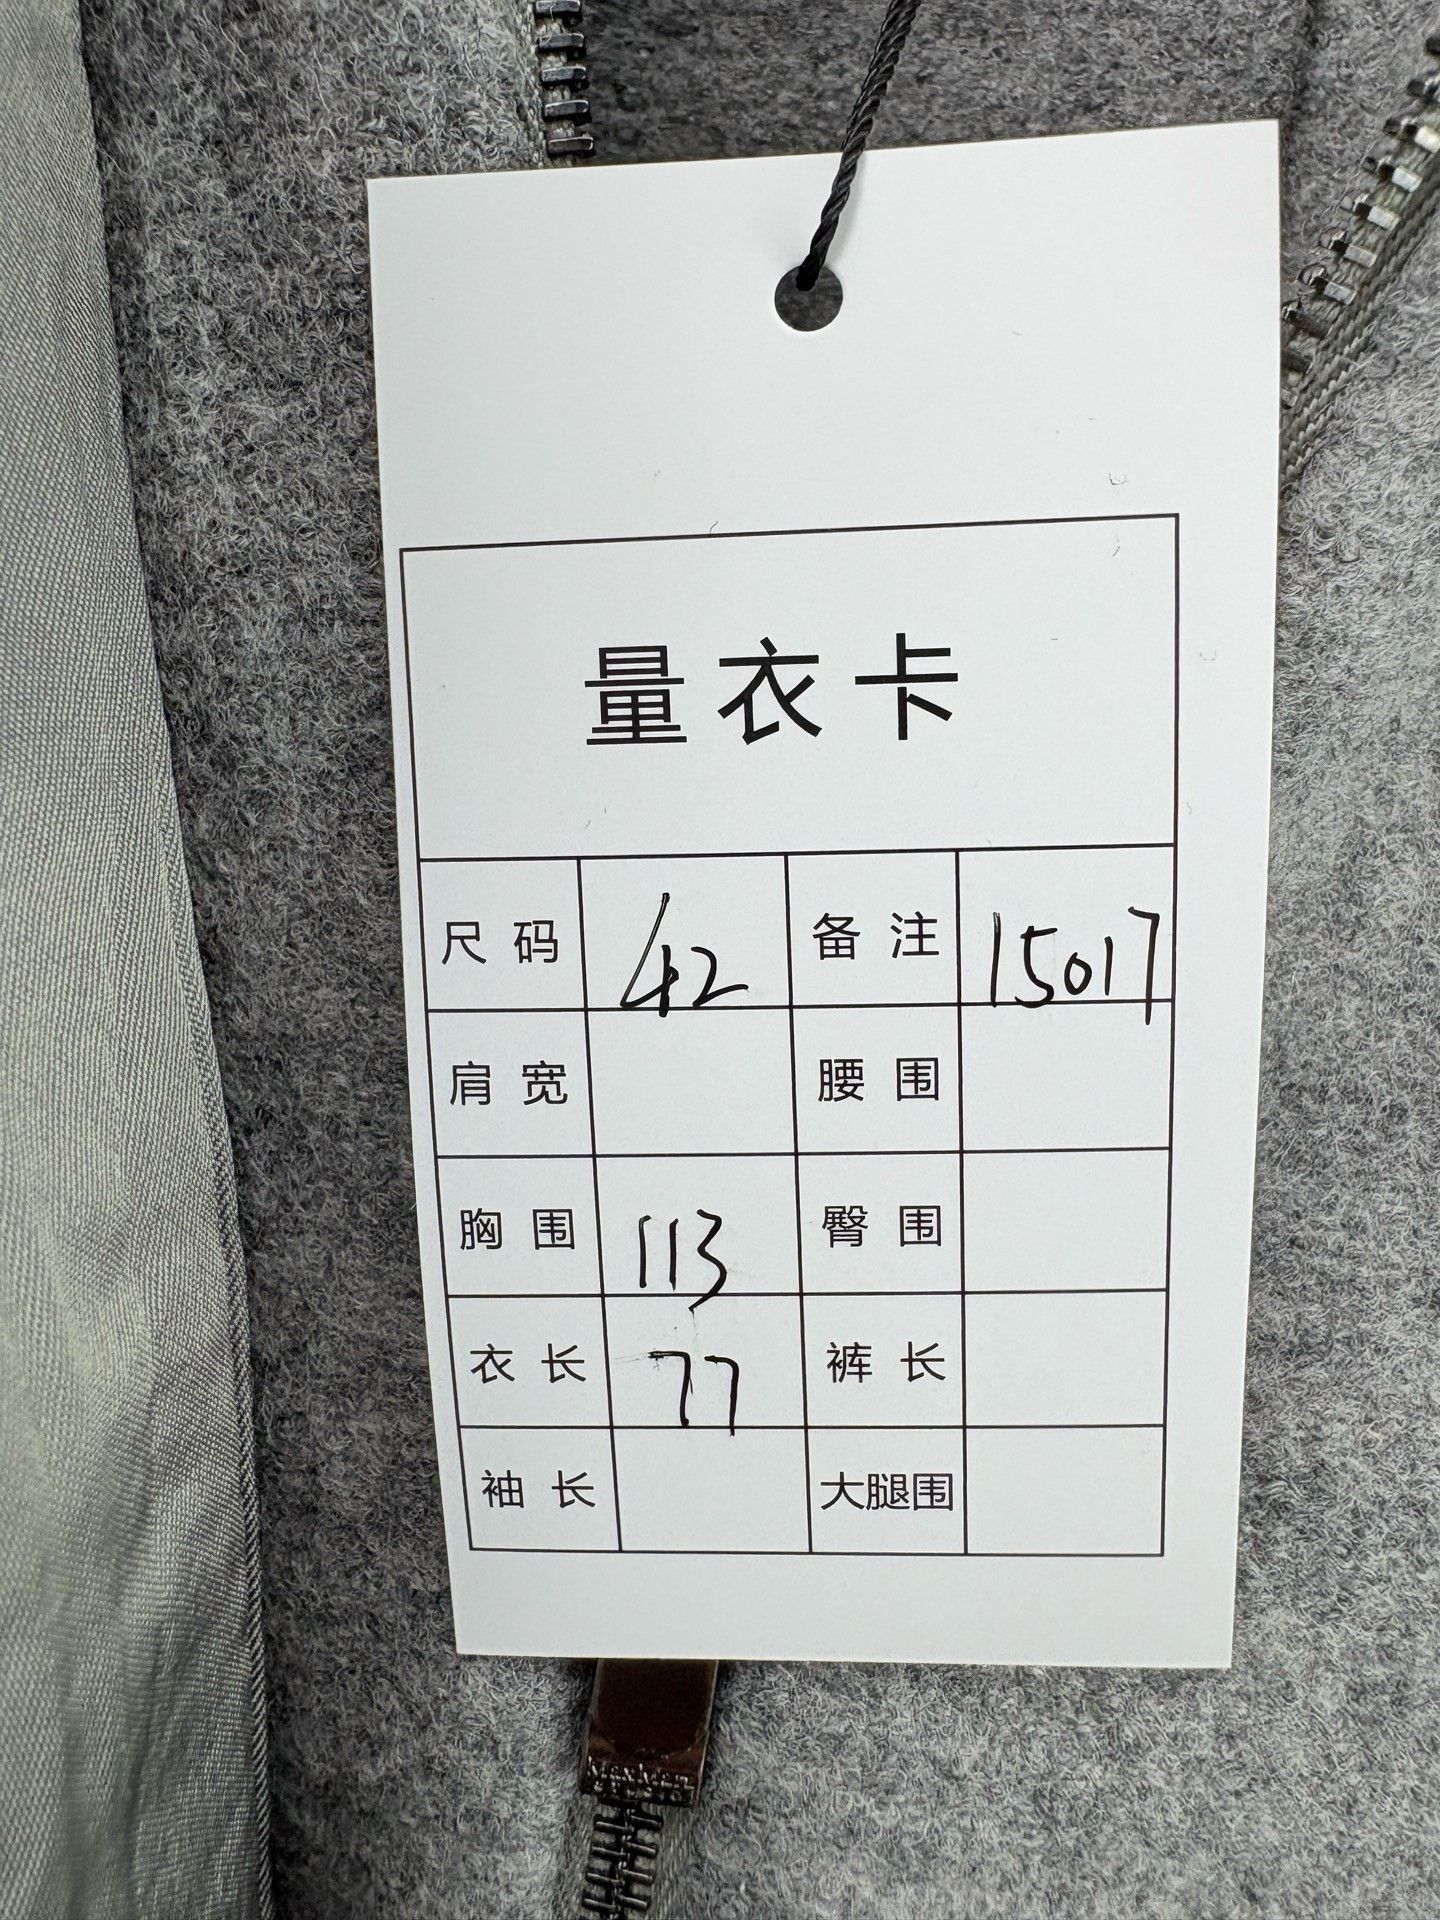 量衣卡
尺码 42 备注 15017
肩宽 腰围
胸围 113 臀围
衣长 77 裤长
袖长 大腿围